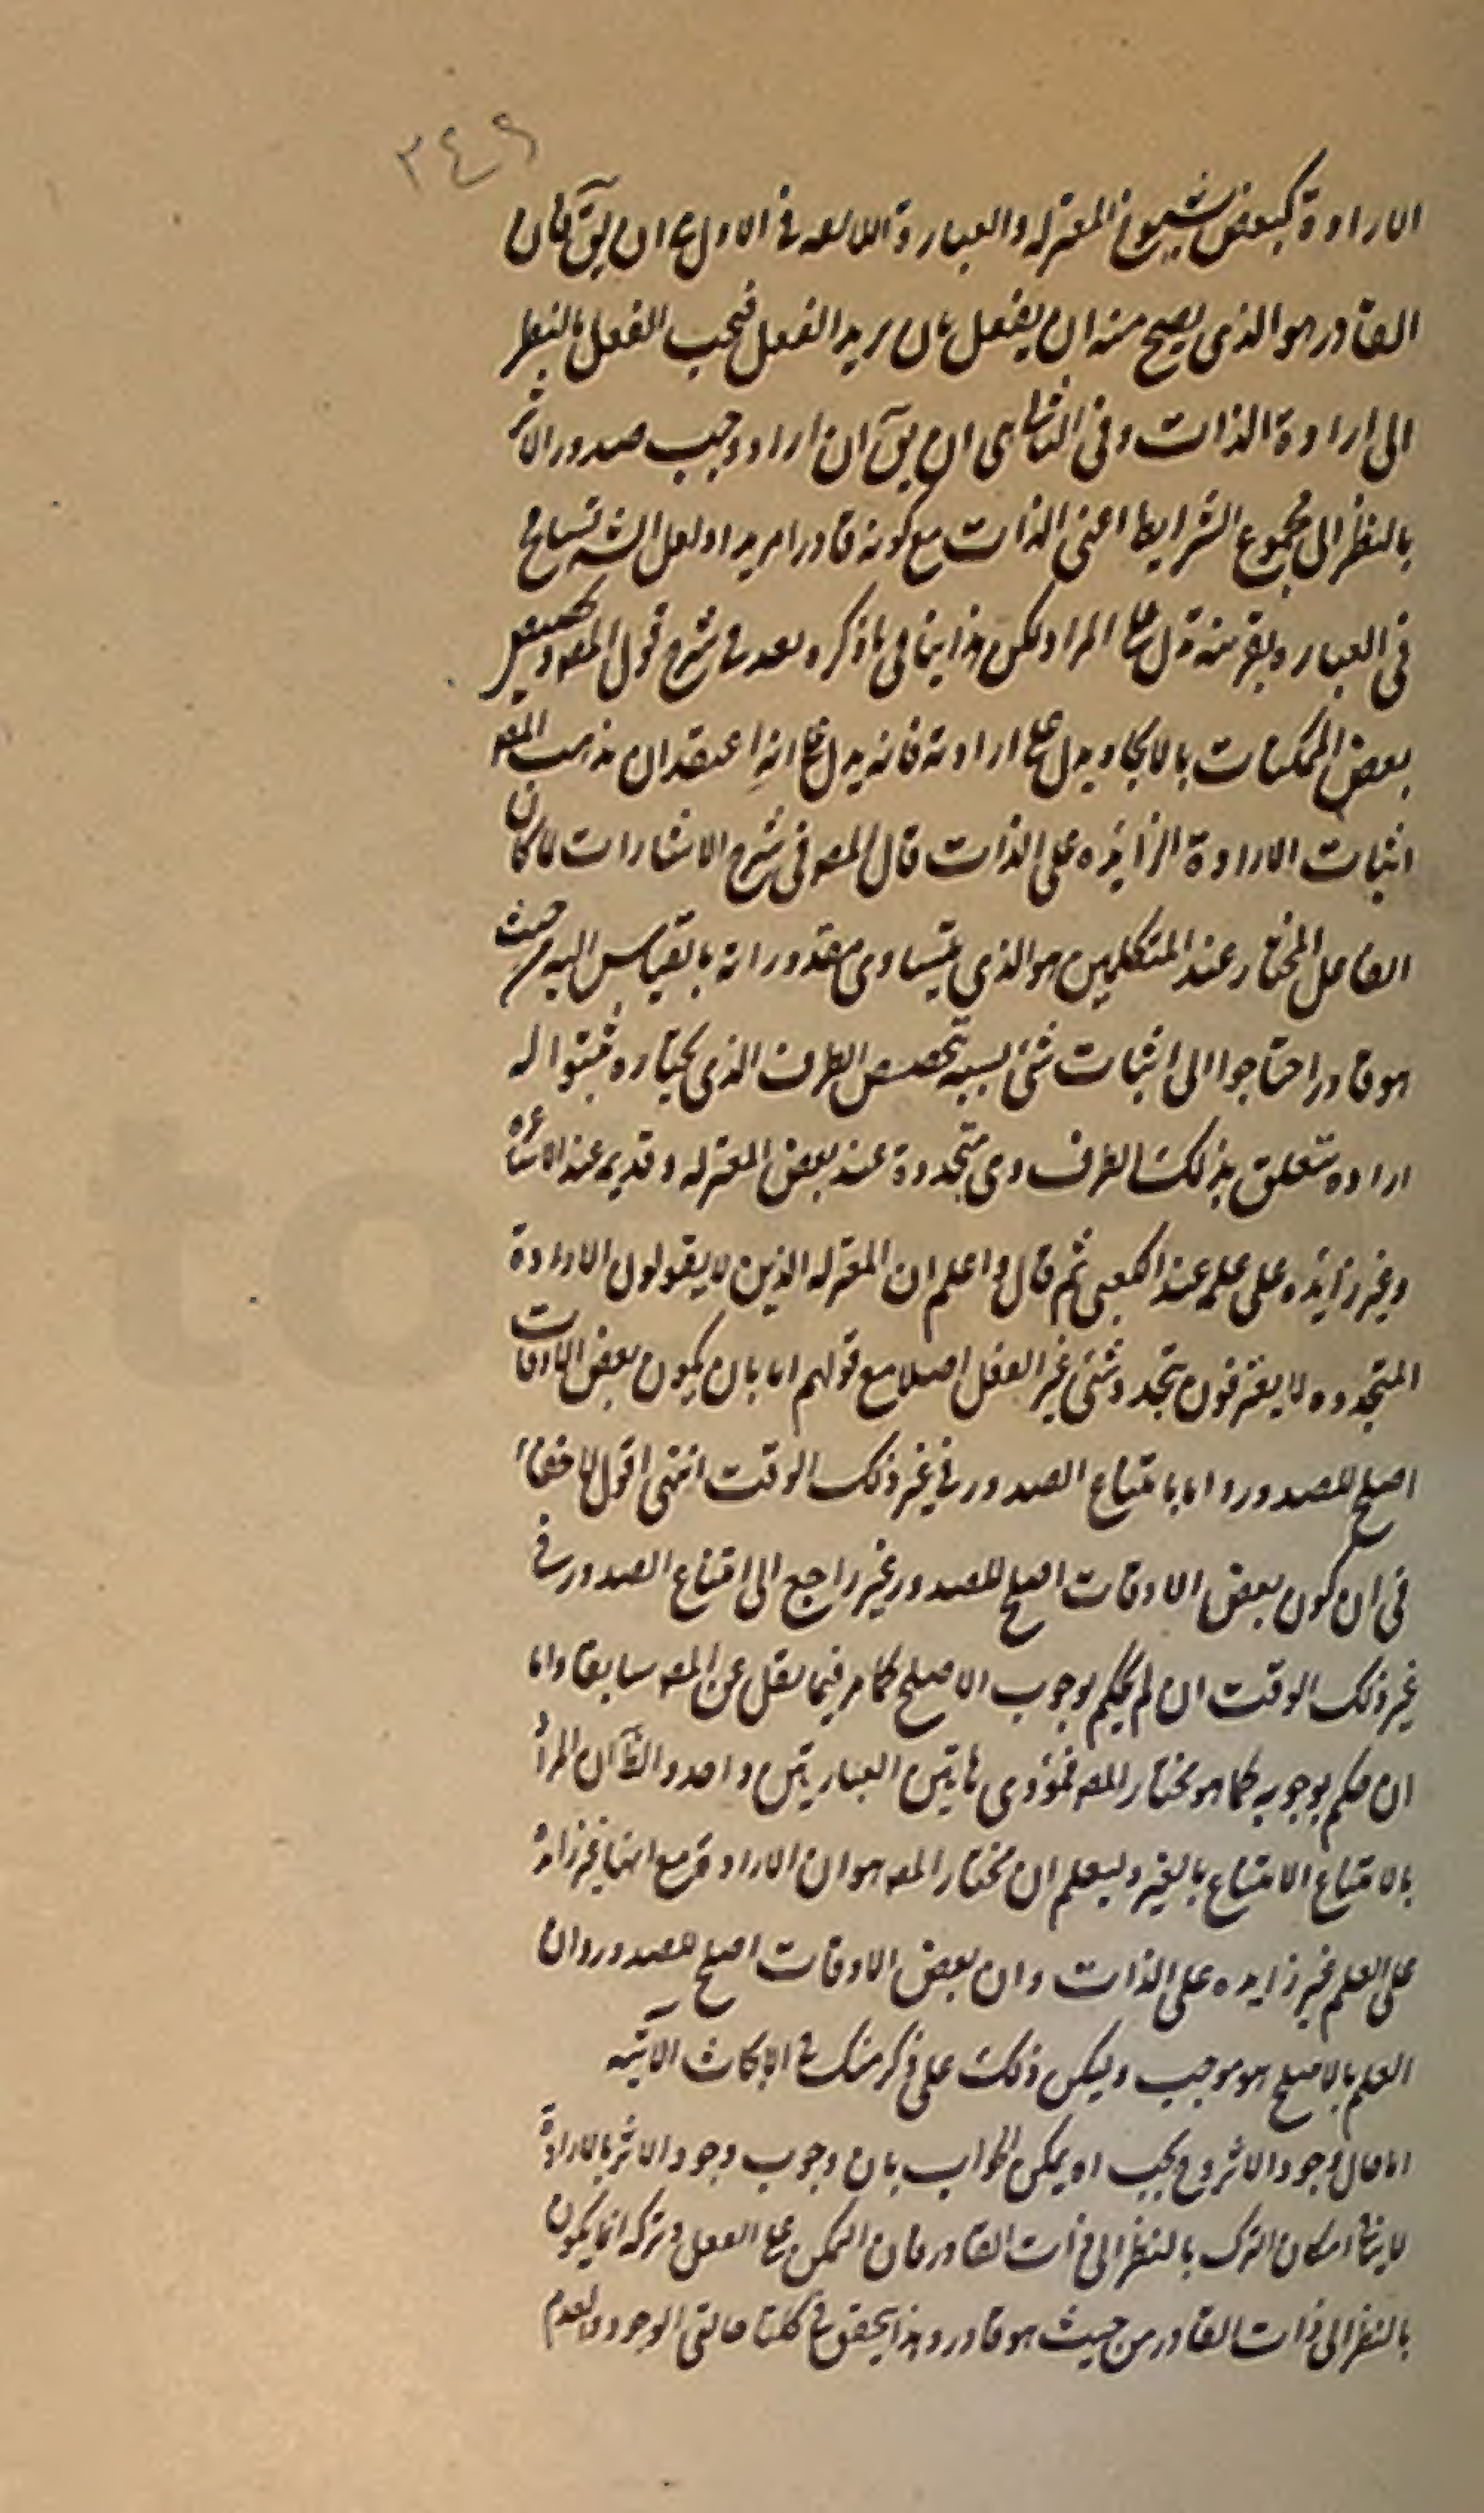 ٢٤٩
الارادة كبعض شيوخ المعتزله والعبارة اللايقه فى الاول ان يق فان
القادر هو الذى يصح منه ان يفعل بان يريد الفعل فيجب الفعل بالنظر
الى ارادة الذات وفى الثانى ان يق ان اراد وجب صدور الاثر
بالنظر الى مجموع الشرايط اعنى الذات مع كونه قادرا مريدا ولعل الش تسامح
فى العباره بقرينة على المراد لكن هذا ينافى ما ذكره بعد فى شرح قول المص وتخصيص
بعض الممكنات بالايجاد يدل على ارادته فانه يدل على انه اعتقد ان مذهب المص
اثبات الارادة الزايده على الذات قال المص فى شرح الاشارات لما كان
الفاعل المختار عند المتكلمين هو الذي يتساوى مقدوراته بالقياس اليه من حيث
هو قادر احتاجوا الى اثبات شئ بسببه تخصص الطرف الذى يختاره فثبتوا له
اراده تتعلق بذلك الطرف وهى متجددة عند بعض المعتزله وقديمه عند الاشاعره
وغير زايده على علمه عند الكعبى ثم قال واعلم ان المعتزله الذين لا يقولون الارادة
المتجدده لا يعترفون بتجدد شئ غير الفعل اصلا مع قولهم اما بان يكون بعض الاوقات
اصلح للصدور واما بامتناع الصدور فى غير ذلك الوقت انتهى اقول لا خفاء
فى ان كون بعض الاوقات اصلح للصدور غير راجع الى امتناع الصدور فى
غير ذلك الوقت ان لم يحكم بوجوب الاصلح كما مر فيما نقل عن المص سابقا واما
ان حكم بوجوبه كما هو مختار المص فمؤدى هاتين العبارتين واحد والظ ان المراد
بالامتناع الامتناع بالغير وليعلم ان مختار المص هو ان الارادة مع انها غير زايدة
على العلم غير زايده على الذات وان بعض الاوقات اصلح للصدور وان
العلم بالاصلح هو موجب وليكن ذلك على ذكر منك فى الابحاث الآتيه
اما حال وجود الاثر وح يجب اه يمكن الجواب بان وجوب وجود الاثر بالارادة
لا ينافى امكان الترك بالنظر الى ذات القادر فان التمكن على الفعل وتركه انما يكون
بالنظر الى ذات القادر من حيث هو قادر وهذا يتحقق فى كلتا حالتى الوجود والعدم